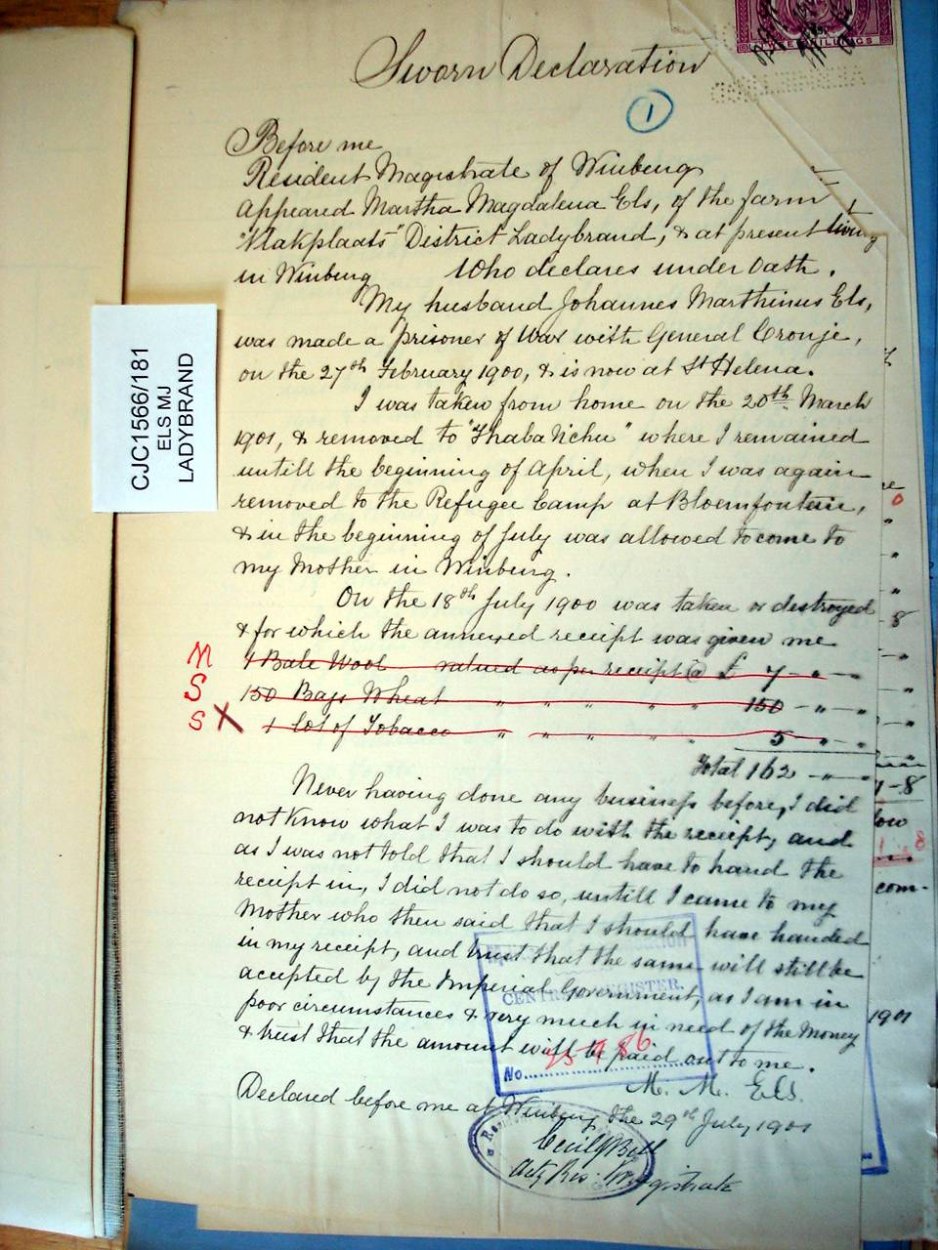 Sworn Declaration
1
Before me
Resident Magistrate of Winburg
Appeared Martha Magdalena Els, of the farm
"Vlakplaats" District Ladybrand, & at present living
in Winburg Who declares under Oath.
My husband Johannes Marthinus Els,
was made a prisoner of War with General Cronje,
on the 27th February 1900, & is now at St Helena.
I was taken from home on the 20th March
1901, & removed to "Thaba Nchu" where I remained
untill the beginning of April, when I was again
removed to the Refugee Camp at Bloemfontein,
& in the beginning of July was allowed to come to
my Mother in Winburg.
On the 18th July 1900 was taken or destroyed
& for which the annexed receipt was given me
M 1 Bale Wool valued as per receipt @ £ 7 - " -
S 150 Bags Wheat " " " " 150 - " -
S X 1 lot of Tobacco " " " " " 5 " -
Total 162 - " -
Never having done any business before, I did
not know what I was to do with the receipt, and
as I was not told that I should have to hand the
receipt in, I did not do so, untill I came to my
Mother who then said that I should have handed
in my receipt, and trust that the same will still be
accepted by the Imperial Government, as I am in
poor circumstances & very much in need of the Money
& trust that the amount will be paid out to me.
M. M. Els.
Declared before me at Winburg the 29th July 1901
Actg Res: Magistrate
CENTRAL REGISTER.
No.
CJC1566/181
ELS MJ
LADYBRAND
8
4-8
com-
1901